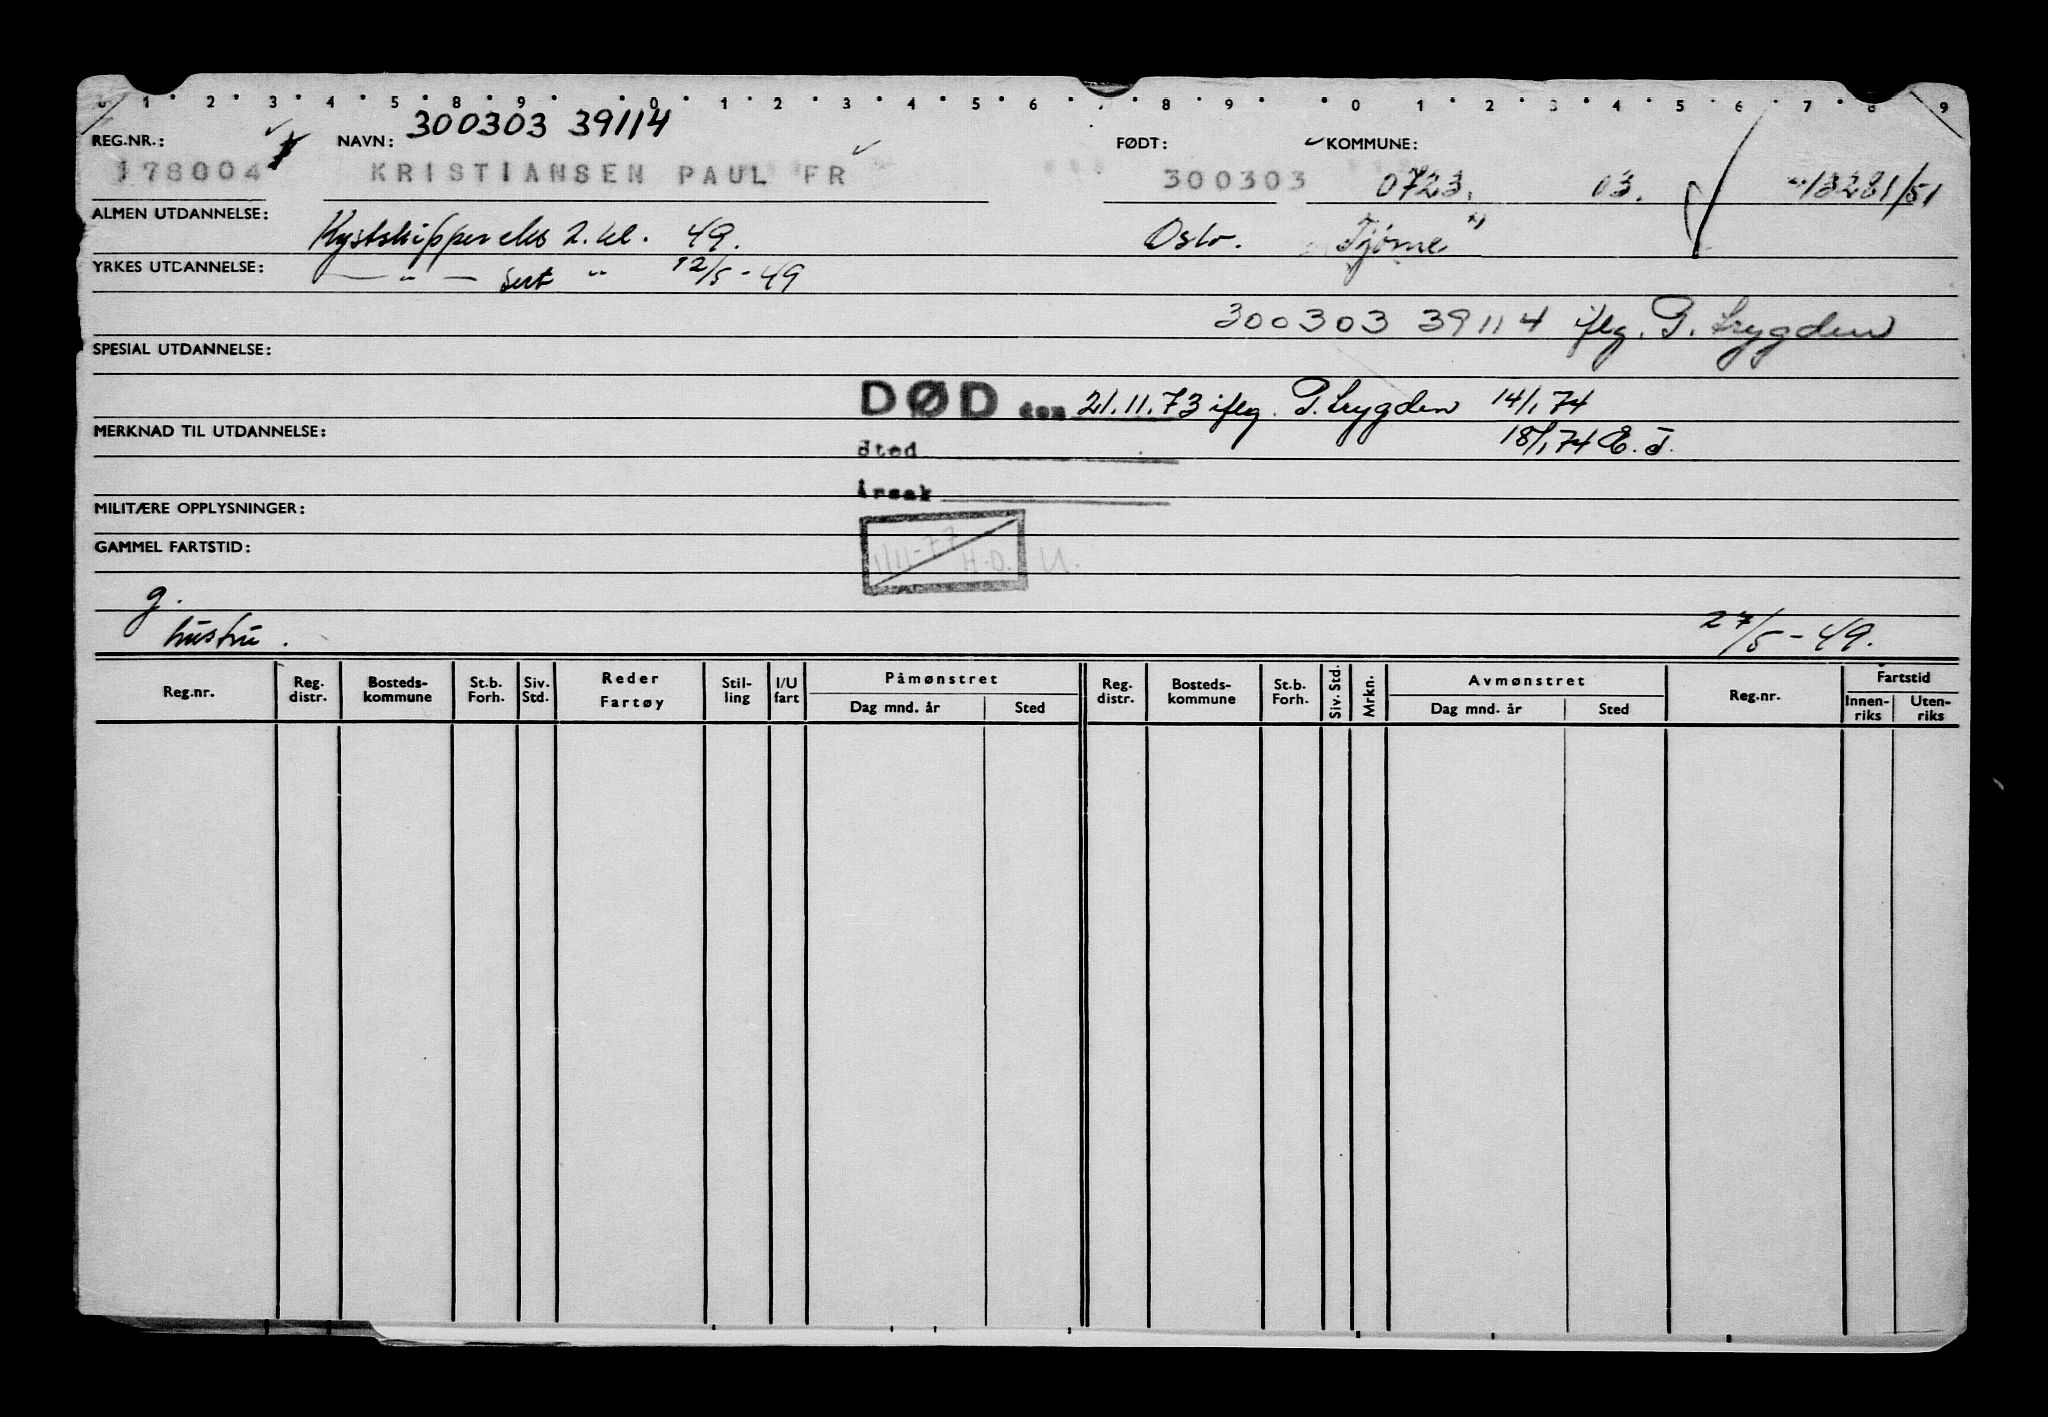 0 1 2 3 4 5 6 8 9 0 1 2 3 4 5 6 7 8 9 0 1 2 3 4 5 6 7 8 9
300303 39114
REG.NR.: NAVN: FØDT: KOMMUNE:
178004 KRISTIANSEN PAUL FR 300303 0723. 03. 13281/51
ALMEN UTDANNELSE: Kystskipper eks 2. kl. 49. Oslo. Tjøme
YRKES UTDANNELSE: — " — sert " 12/5-49
300303 39114 iflg. P. Trygden
SPESIAL UTDANNELSE:
DØD den 21.11.73 iflg. P. Trygden 14/1 74
MERKNAD TIL UTDANNELSE: 18/1 74 E. J.
Sted
Årsak
MILITÆRE OPPLYSNINGER:
GAMMEL FARTSTID: 1/11-77 H.O.
g.
hustru. 27/5-49.
Reg.nr. Reg. distr. Bosteds-kommune St.b. Forh. Siv. Std. Reder Fartøy Stil-ling I/U fart Påmønstret Dag mnd. år Sted Reg. distr. Bosteds-kommune St.b. Forh. Siv. Std. Mrkn. Avmønstret Dag mnd. år Sted Reg.nr. Fartstid Innen-riks Uten-riks